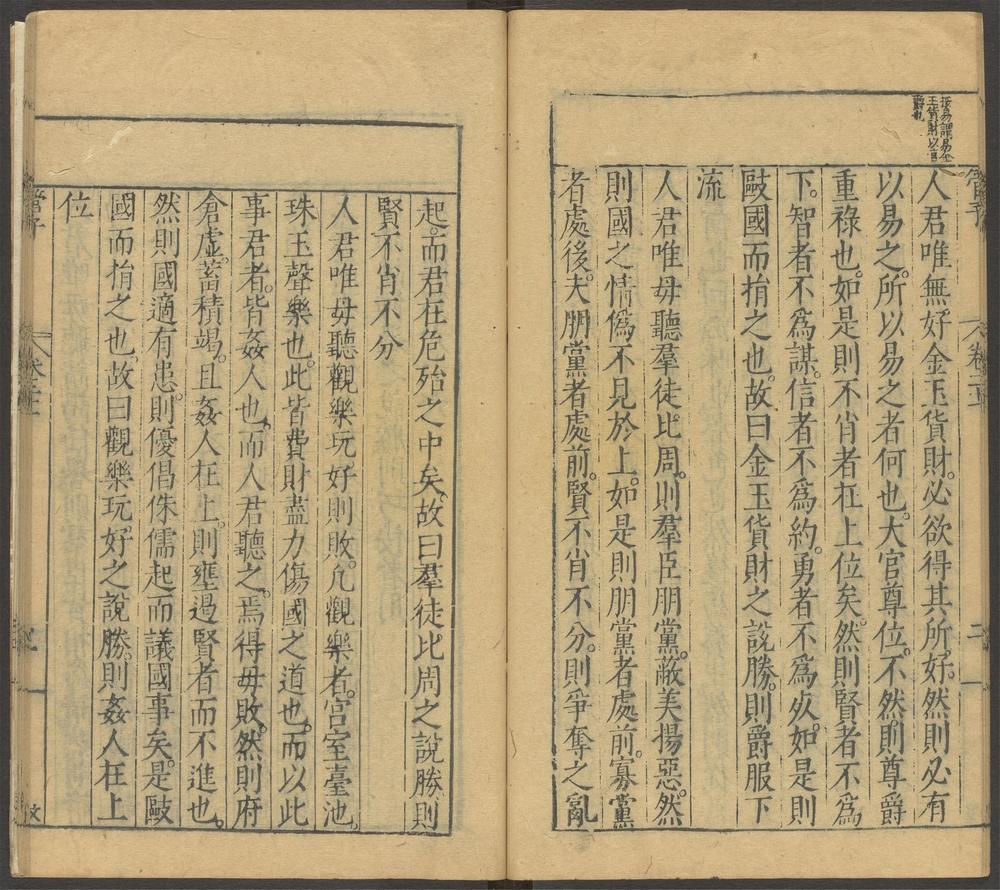 按易謂易金
玉貨財以官
爵也
管子
人君唯無好金玉貨財必欲得其所好然則必有
以易之所以易之者何也大官尊位不然則尊爵
重祿也如是則不肖者在上位矣然則賢者不爲
下智者不爲謀信者不爲約勇者不爲死如是則
敺國而捐之也故曰金玉貨財之說勝則爵服下
流
人君唯毋聽羣徒比周則羣臣朋黨蔽美揚惡然
則國之情僞不見於上如是則朋黨者處前寡黨
者處後夫朋黨者處前賢不肖不分則爭奪之亂
起而君在危殆之中矣故曰羣徒比周之說勝則
賢不肖不分
人君唯毋聽觀樂玩好則敗凡觀樂者宮室臺池
珠玉聲樂也此皆費財盡力傷國之道也而以此
事君者皆姦人也而人君聽之焉得毋敗然則府
倉虛蓄積竭且姦人在上則壅遏賢者而不進也
然則國適有患則優倡侏儒起而議國事矣是敺
國而捐之也故曰觀樂玩好之說勝則姦人在上
位
管子